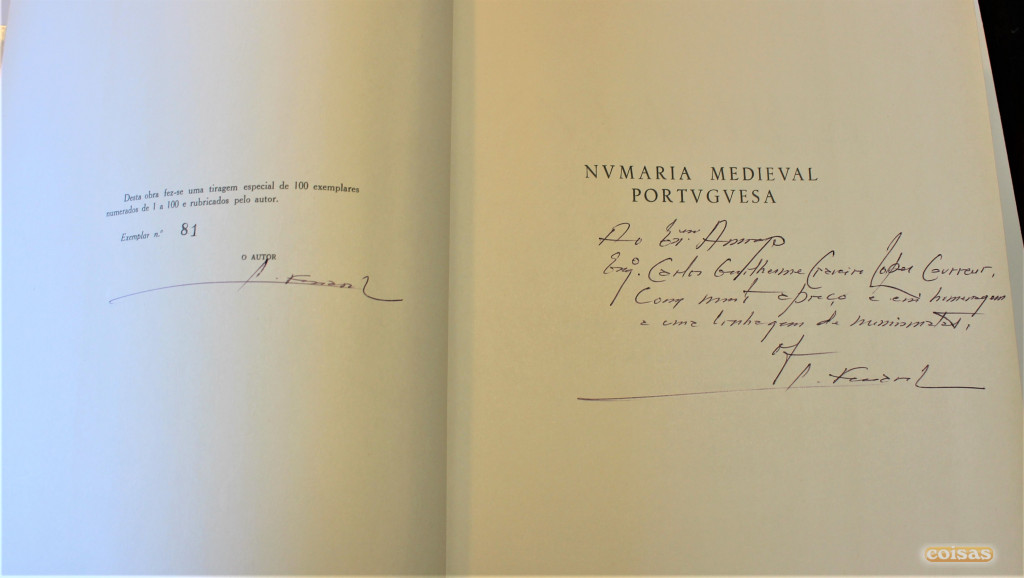 Desta obra fez-se uma tiragem especial de 100 exemplares
numerados de 1 a 100 e rubricados pelo autor.
Exemplar n.º 81
O AUTOR
NVMARIA MEDIEVAL
PORTVGVESA
Ao Exmo. Amigo
Engº. Carlos Guilherme Craveiro Lopes Couvreur,
Com muito apreço e em homenagem
a uma linhagem de numismatas,
coisas